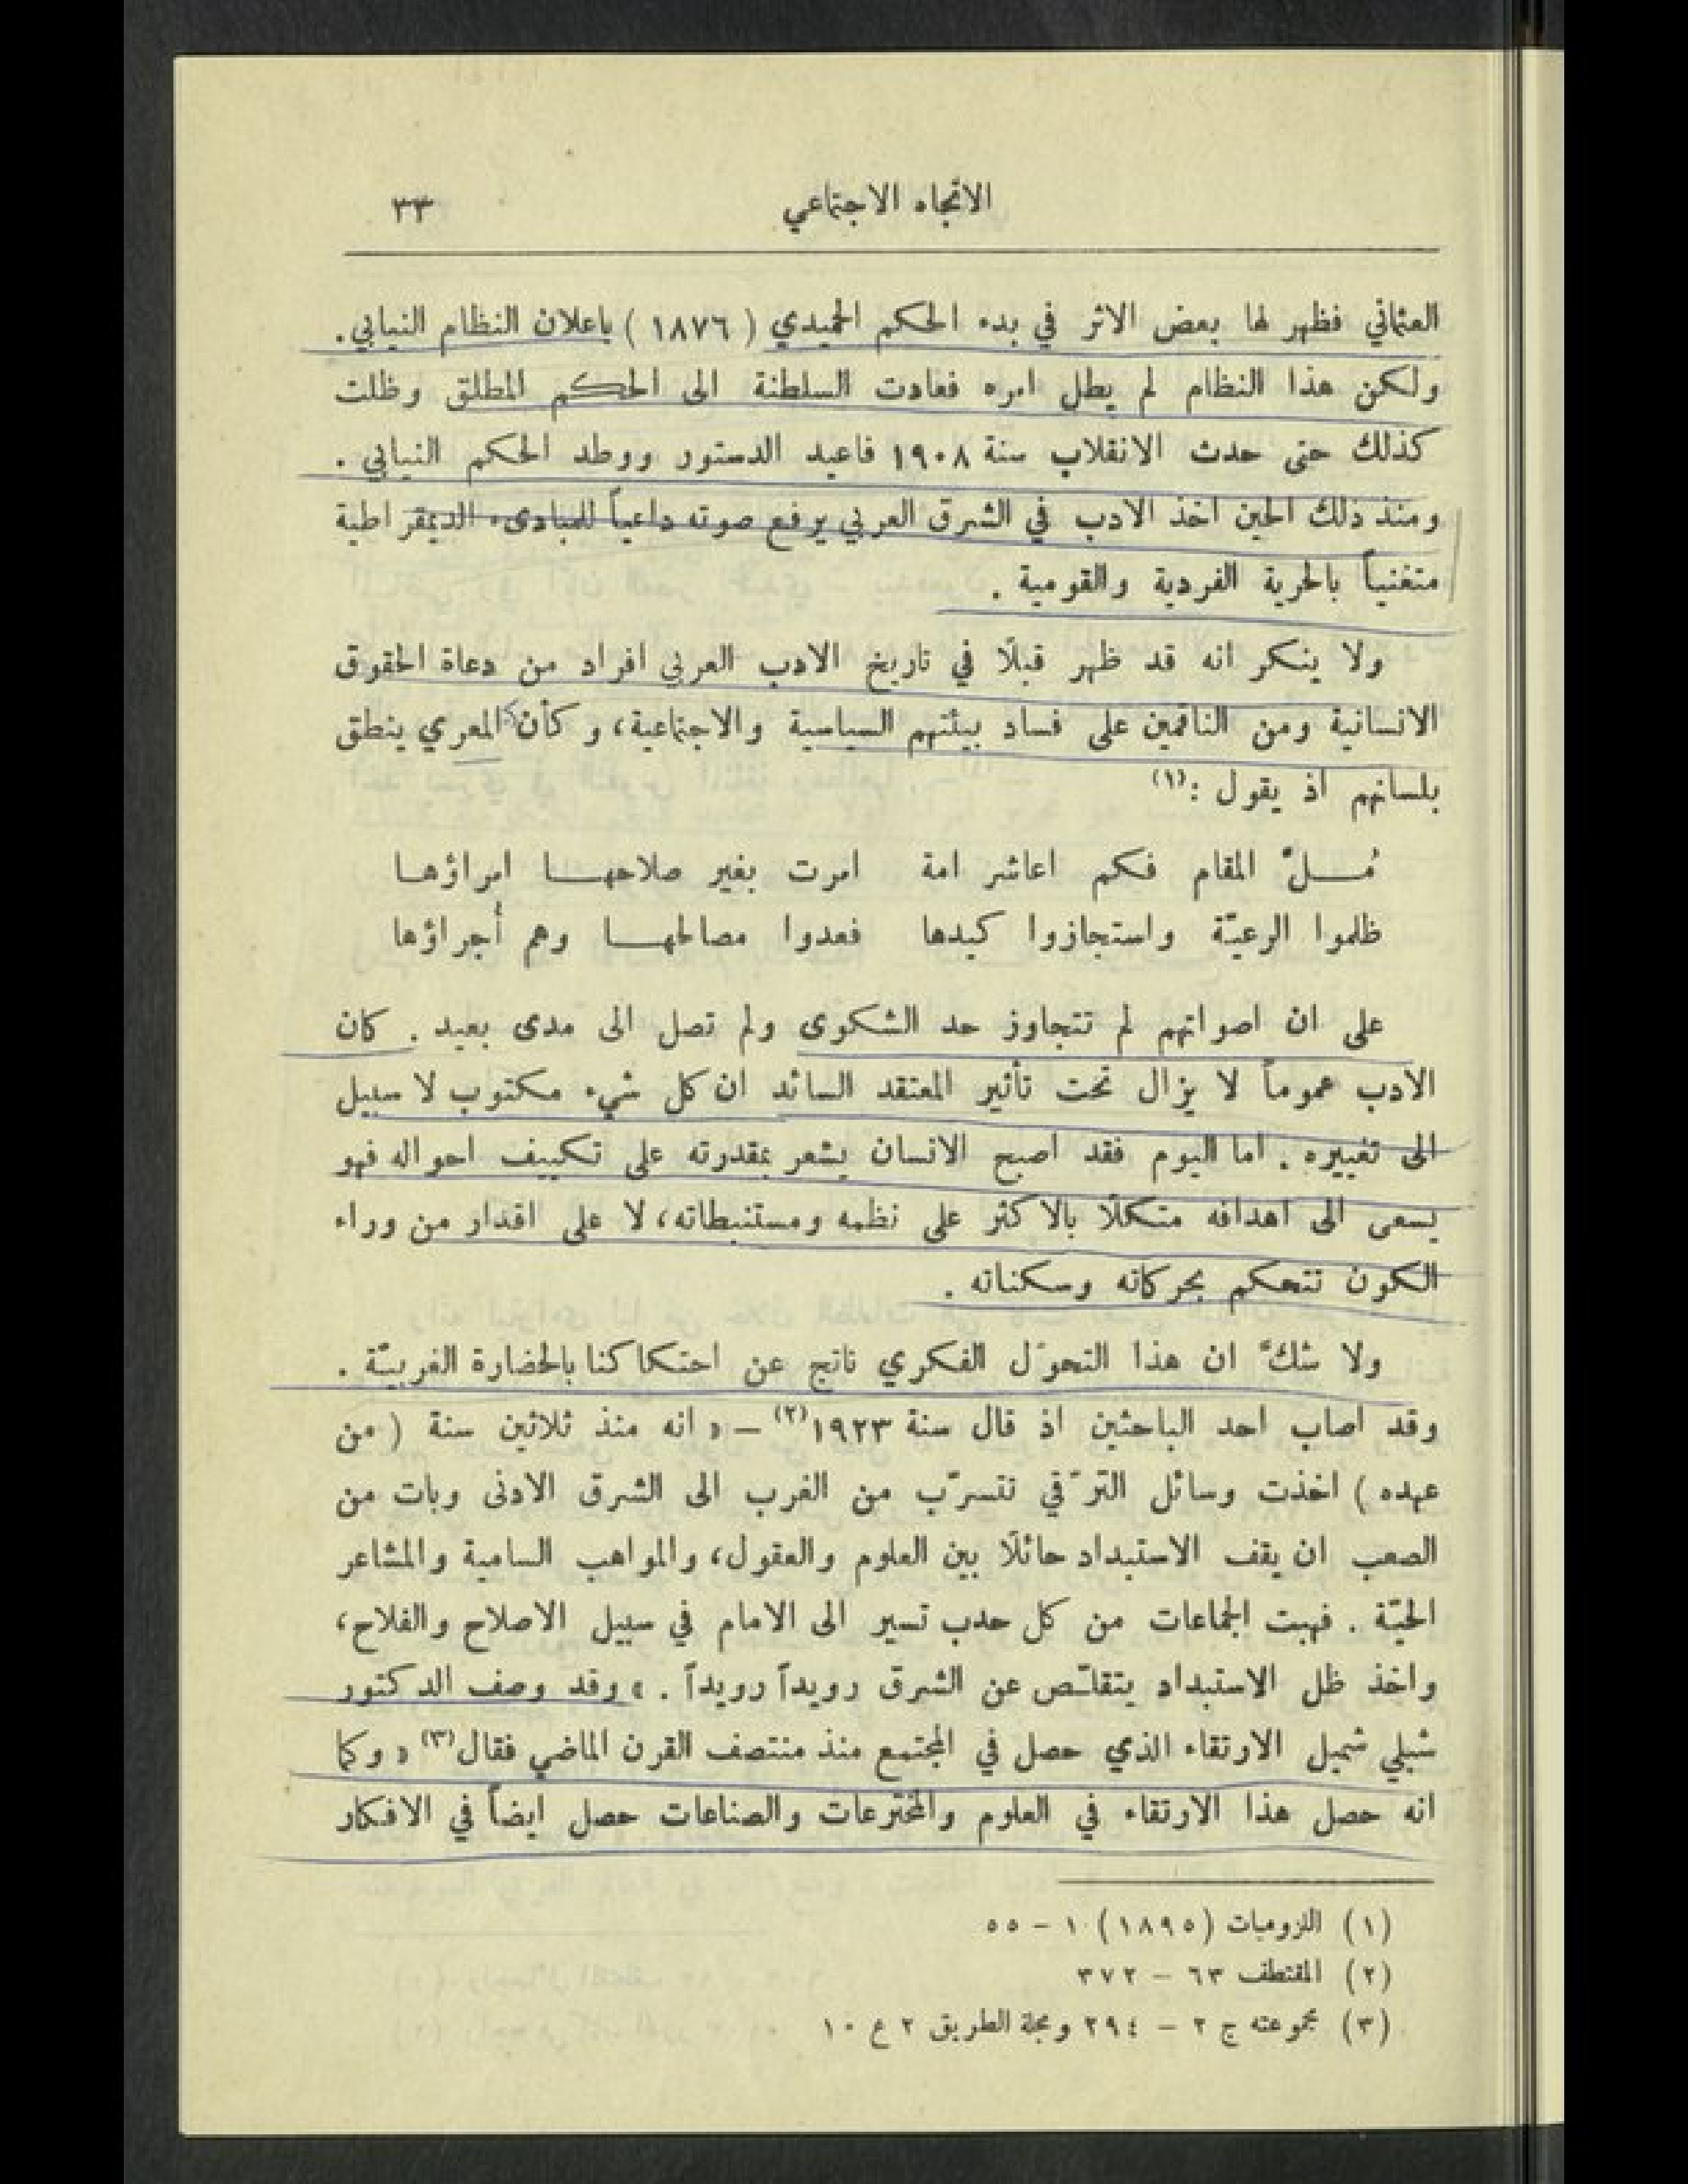 الاتّجاه الاجتماعي ٣٣
العثماني فظهر لها بعض الاثر في بدء الحكم الحميدي ( ١٨٧٦ ) باعلان النظام النيابي .
ولكن هذا النظام لم يطل امره فعادت السلطنة الى الحكم المطلق وظلت
كذلك حتى حدث الانقلاب سنة ١٩٠٨ فاعيد الدستور ووطد الحكم النيابي .
ومنذ ذلك الحين اخذ الادب في الشرق العربي يرفع صوته داعياً للمبادىء الديمقراطية
متغنياً بالحرية الفردية والقومية .
ولا ينكر انه قد ظهر قبلًا في تاريخ الادب العربي افراد من دعاة الحقوق
الانسانية ومن الناقمين على فساد بيئتهم السياسية والاجتماعية، وكأن المعري ينطق
بلسانهم اذ يقول :(١)
مُـلَّ المقام فكم اعاشر امة امرت بغير صلاحهـا امراؤهـا
ظلموا الرعيّة واستجازوا كيدها فعدوا مصالحهـا وهم أُجراؤها
على ان اصواتهم لم تتجاوز حد الشكوى ولم تصل الى مدى بعيد . كان
الادب عموماً لا يزال تحت تأثير المعتقد السائد ان كل شيء مكتوب لا سبيل
الى تغييره . اما اليوم فقد اصبح الانسان يشعر بمقدرته على تكييف احواله فهو
يسعى الى اهدافه متكلًا بالاكثر على نظمه ومستنبطاته، لا على اقدار من وراء
الكون تتحكم بحركاته وسكناته .
ولا شكّ ان هذا التحوّل الفكري ناتج عن احتكاكنا بالحضارة الغربيّة .
وقد اصاب احد الباحثين اذ قال سنة ١٩٢٣(٢) – « انه منذ ثلاثين سنة ( من
عهده ) اخذت وسائل الترّقي تتسرّب من الغرب الى الشرق الادنى وبات من
الصعب ان يقف الاستبداد حائلًا بين العلوم والعقول، والمواهب السامية والمشاعر
الحيّة . فهبت الجماعات من كل حدب تسير الى الامام في سبيل الاصلاح والفلاح،
واخذ ظل الاستبداد يتقلّـص عن الشرق رويداً رويداً . » وقد وصف الدكتور
شبلي شميل الارتقاء الذي حصل في المجتمع منذ منتصف القرن الماضي فقال(٣) « وكما
انه حصل هذا الارتقاء في العلوم والمخترعات والصناعات حصل ايضاً في الافكار
(١) اللزوميات (١٨٩٥) ١ – ٥٥
(٢) المقتطف ٦٣ – ٣٧٢
(٣) مجموعته ج ٢ – ٢٩٤ ومجلة الطريق ٢ ع ١٠